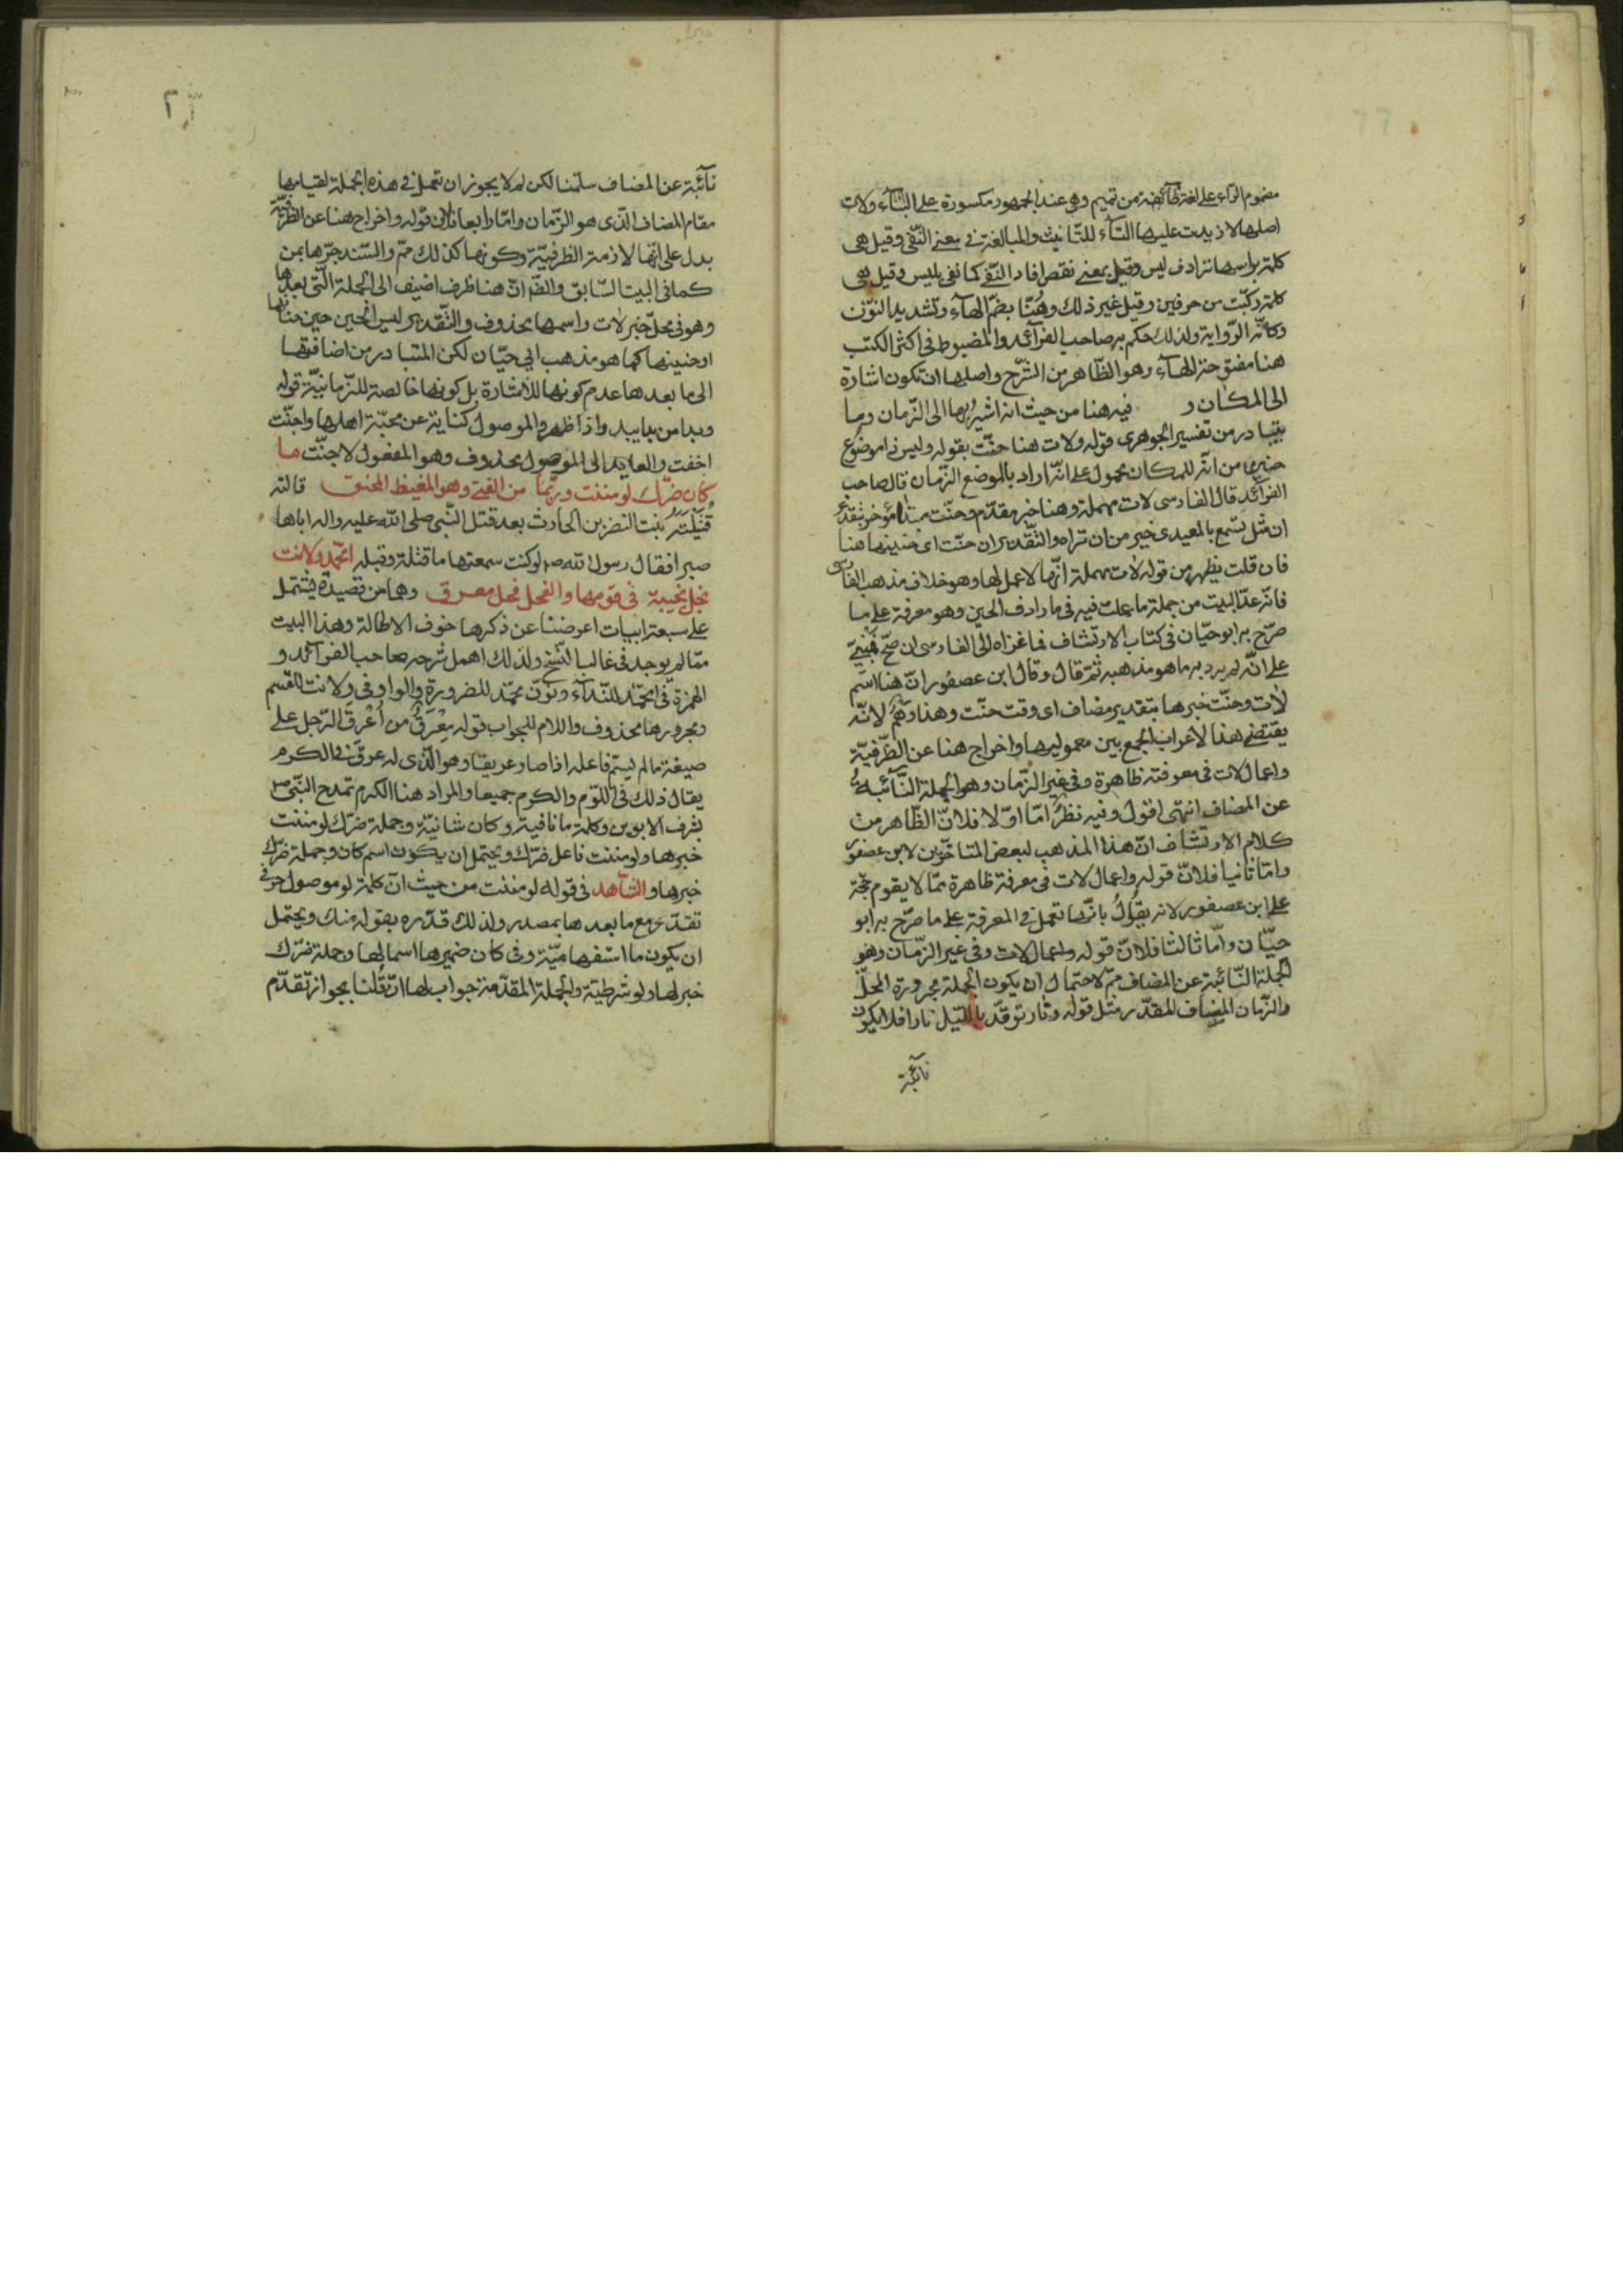 مضموم الراء على لغة طائفة من تميم وهى عند الجمهور مكسورة على البناء ولات
اصلها لا زيدت عليها التاء للتانيث والمبالغة فى معنى النفى وقيل هى
كلمة براسها ترادف ليس وقيل بمعنى نقص افاد النفى كما نفى بليس وقيل هى
كلمة ركبت من حرفين وقيل غير ذلك وهُنّا بضم الهاء وتشديد النون
وكانه الرواية ولذلك حكم به صاحب الفرائد والمضبوط فى اكثر الكتب
هنا مفتوحة الهاء وهو الظاهر من الشرح واصلها ان تكون اشارة
الى المكان و فيه هنا من حيث انه اشير بها الى الزمان وما
يتبادر من تفسير الجوهرى قوله ولات هنا حنّت بقوله وليس ذا موضع
حنين من انه للمكان محمول على انه اراد بالموضع الزمان قال صاحب
الفرائد قال الفارسى لات مهملة وهنا خبر مقدم وحنّت مبتدا مؤخر بتقدير
ان مثل تسمع بالمعيدى خير من ان تراه والتقدير ان حنّت اى حنينها هنا
فان قلت يظهر من قوله لات مهملة انها لا عمل لها وهو خلاف مذهب الفارسى
فانه عدّ البيت من جملة ما عملت فيه فى ما رادف الحين وهو معرفة على ما
صرّح به ابو حيّان فى كتاب الارتشاف فما عزاه الى الفارسى ان صحّ فمبنىّ
على انه لم يرد به ما هو مذهبه ثم قال وقال ابن عصفور ان هنا اسم
لات وحنّت خبرها بتقدير مضاف اى وقت حنّت وهذا وهم لانه
يقتضى هذا الاعراب الجمع بين معموليها واخراج هنا عن الظرفية
واعمال لات فى معرفة ظاهرة وفى غير الزمان وهو الجملة النائبة
عن المضاف انتهى اقول وفيه نظر امّا اوّلا فلانّ الظاهر من
كلام الارتشاف ان هذا المذهب لبعض المتاخرين لا بن عصفور
وامّا ثانيا فلانّ قوله واعمال لات فى معرفة ظاهرة ممّا لا يقوم حجة
على ابن عصفور لانه يقول بانها تعمل فى المعرفة على ما صرّح به ابو
حيّان وامّا ثالثا فلانّ قوله واعمال لات وفى غير الزمان وهو
الجملة النائبة عن المضاف مم لاحتمال ان يكون الجملة مجرورة المحل
والزمان المضاف المقدر مثل قوله ونار توقد بالليل نارا فلا يكون
نائبة
نائبة عن المضاف سلّمنا لكن لم لا يجوز ان تعمل فى هذه الجملة لقيامها
مقام المضاف الذى هو الزمان وامّا رابعا فلان قوله واخراج هنا عن الظرفية
يدل على انها لازمة الظرفية وكونها كذلك مم والسند جرّها بمن
كما فى البيت السابق والضم انّ هنا ظرف اضيف الى الجملة التى بعدها
وهو فى محل خبر لات واسمها محذوف والتقدير ليس الحين حين حنانها
او حنينها كما هو مذهب ابى حيّان لكن المتبادر من اضافتها
الى ما بعدها عدم كونها للاشارة بل كونها خالصة للزمانية قوله
وبدا من بدا يبدو اذا ظهر والموصول كناية عن محبّة اهلها واجنّت
اخفت والعايد الى الموصول محذوف وهو المفعول لاجنّت ما
كان ضرّك لو مننت وربّما من الفتى وهو المغيظ المحنق قالته
قُتَيلَة بنت النضر بن الحارث بعد قتل النبى صلى الله عليه واله اباها
صبرا فقال رسول الله صم لو كنت سمعتها ما قتلته وقبله امحمد ولانت
نجل نجيبة فى قومها والفحل فحل معرق وهما من قصيدة تشتمل
على سبعة ابيات اعرضنا عن ذكرها خوف الاطالة وهذا البيت
ممّا لم يوجد فى غالب النسخ ولذلك اهمل شرحه صاحب الفرائد و
الهمزة فى امحمد للنداء ونوّن محمّد للضرورة والواو فى ولانت للقسم
ومجرورها محذوف واللام للجواب قوله مُعْرَق من اُعْرِقَ الرجل على
صيغة ما لم يسمّ فاعله اذا صار عريقا وهو الذى له عرق فى الكرم
يقال ذلك فى اللوم والكرم جميعا والمراد هنا الكرم تمدح النبى ص
بشرف الابوين وكلمة ما نافية وكان شانية وجملة ضرّك لو مننت
خبرها ولو مننت فاعل ضرّك ويحتمل ان يكون اسم كان وجملة ضرّك
خبرها والشاهد فى قوله لو مننت من حيث انّ كلمة لو موصول حرفى
تقدّر مع ما بعدها بمصدر ولذلك قدّره بقوله منك ويحتمل
ان يكون ما استفهامية وفى كان ضميرها اسما لها وجملة ضرّك
خبر لها ولو شرطية والجملة المقدمة جواب لها ان قُلنا بجواز تقدّم